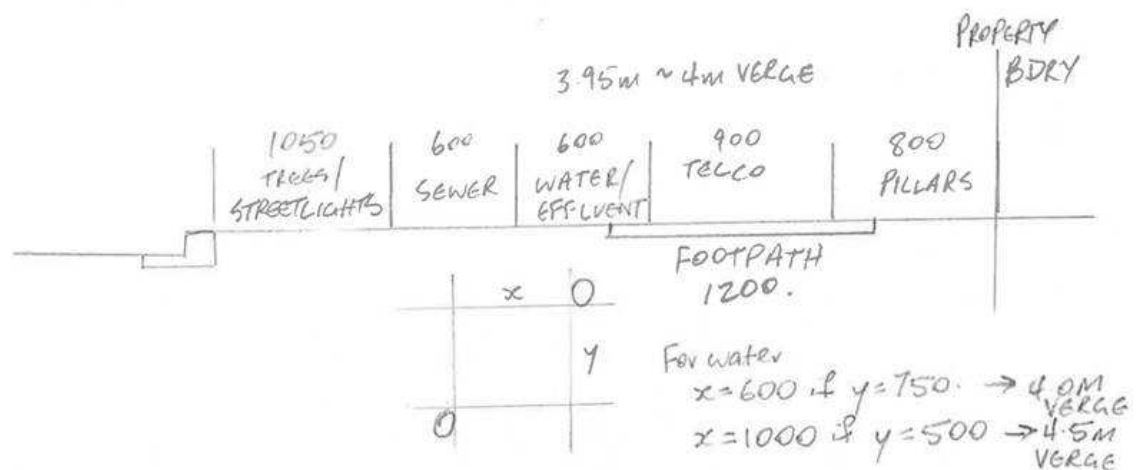 PROPERTY
BDRY
3.95m ~ 4m VERGE
1050
TREES/
STREETLIGHTS
600
SEWER
600
WATER/
EFFLUENT
900
TELCO
800
PILLARS
FOOTPATH
1200.
x
y
For water
x=600 if y=750. → 4.0M
VERGE
x=1000 if y=500 → 4.5M
VERGE